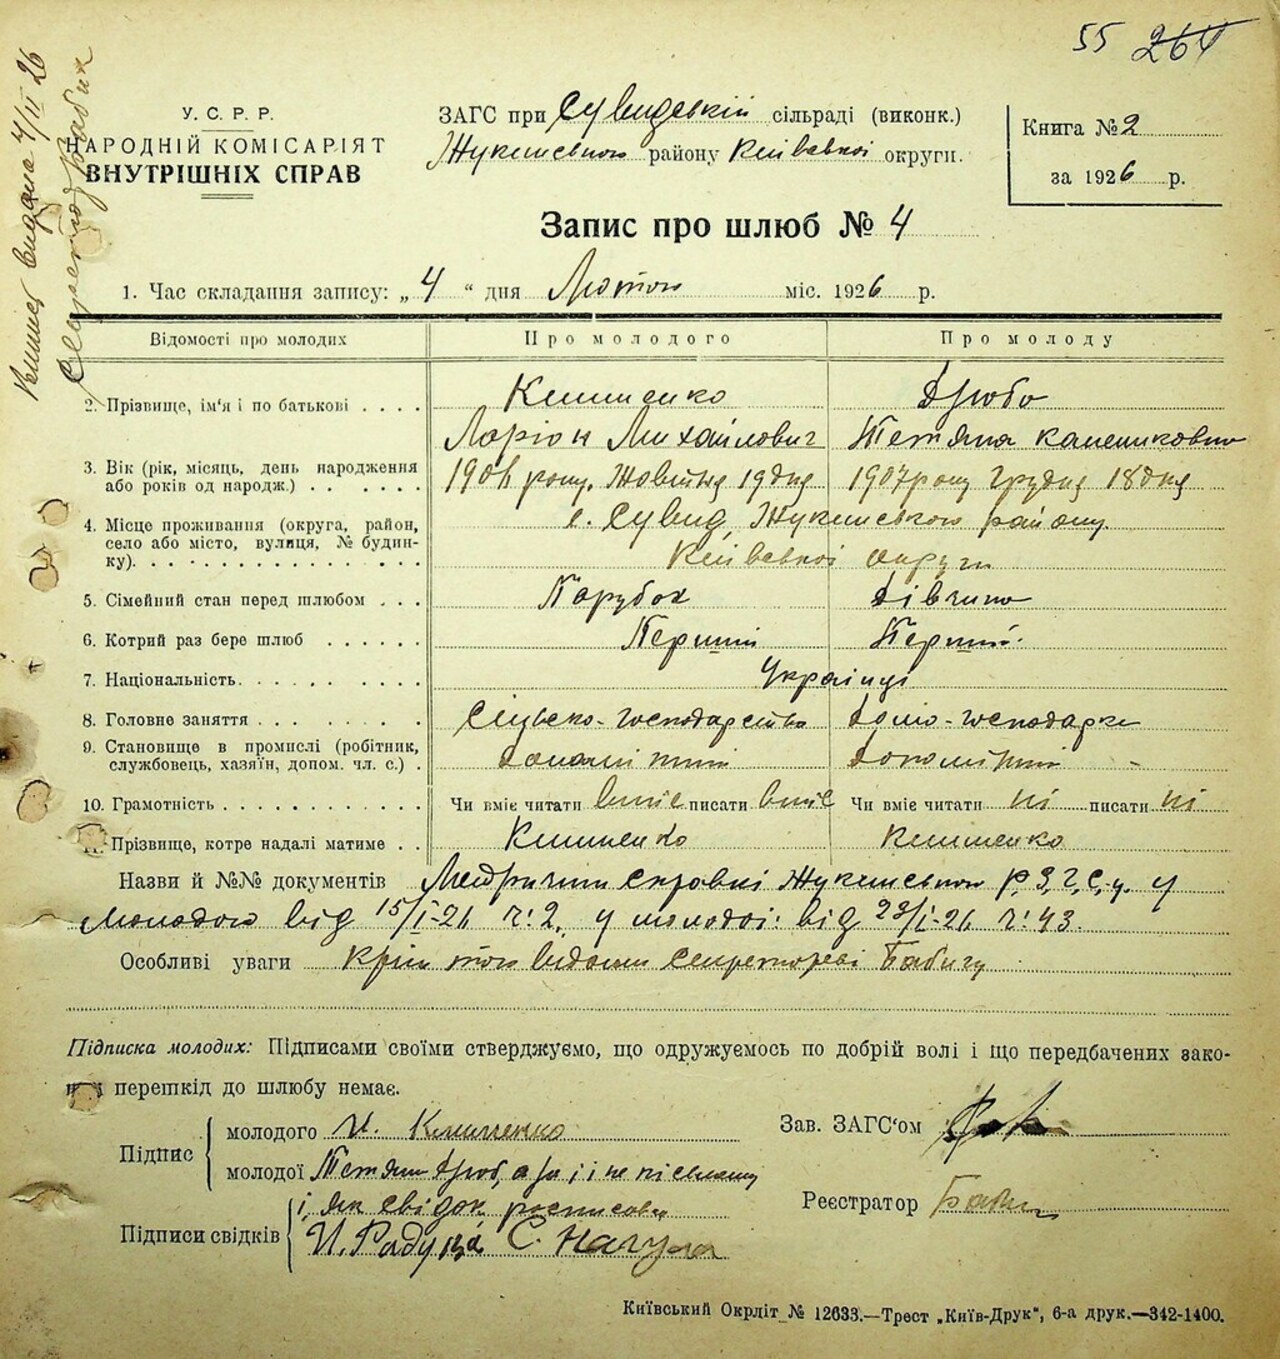 55 264
У. С. Р. Р.
НАРОДНІЙ КОМІСАРІЯТ
ВНУТРІШНІХ СПРАВ
ЗАГС при Сувидській сільраді (виконк.)
Жукинського району Київської округи.
Книга № 2
за 1926 р.
Запис про шлюб № 4
1. Час складання запису: „ 4 “ дня Лютого міс. 1926 р.
Відомості про молодих Про молодого Про молоду
2. Прізвище, ім'я і по батькові . . . . Клименко Дзюба
Ларіон Михайлович Тетяна
3. Вік (рік, місяць, день народження
або років од народж.) . . . . . . 190 року, Жовтня 19 дня 1907 року Грудня 18 дня
4. Місце проживання (округа, район, с. Сувид, Жукинського району.
село або місто, вулиця, № будин-
ку). . . . . . . . . . . . . . . . Київської округи
5. Сімейний стан перед шлюбом . . . Парубок Дівчина
6. Котрий раз бере шлюб . . . . . . Перший Перший.
7. Національність. . . . . . . . . . Українці
8. Головне заняття . . . . . . . . Сільсько-господарство Домо-господарка
9. Становище в промислі (робітник,
службовець, хазяїн, допом. чл. с.) .
10. Грамотність . . . . . . . . . . . Чи вміє читати вміє писати вміє Чи вміє читати ні писати ні
11. Прізвище, котре надалі матиме . . Клименко Клименко
Назви й №№ документів Метричний справки Жукинського Р.З.Г.С.у. у
молодого від 15/I-26 ч: 2, у молодої: від 23/I-26 ч: 43.
Особливі уваги Бабичу
Підписка молодих: Підписами своїми стверджуємо, що одружуємось по добрій волі і що передбачених зако-
ном перешкід до шлюбу немає.
Підпис молодого Клименко
молодої Тетяна Дзюб, а за її не письмену
і, як свідок, росписався
Підписи свідків И. Радуцка С. Нагула
Зав. ЗАГС'ом
Реєстратор Бабич
Київський Окрліт № 12633.—Трест „Київ-Друк“, 6-а друк.—342-1400.
видана 4/II 26
Секретар Бабич